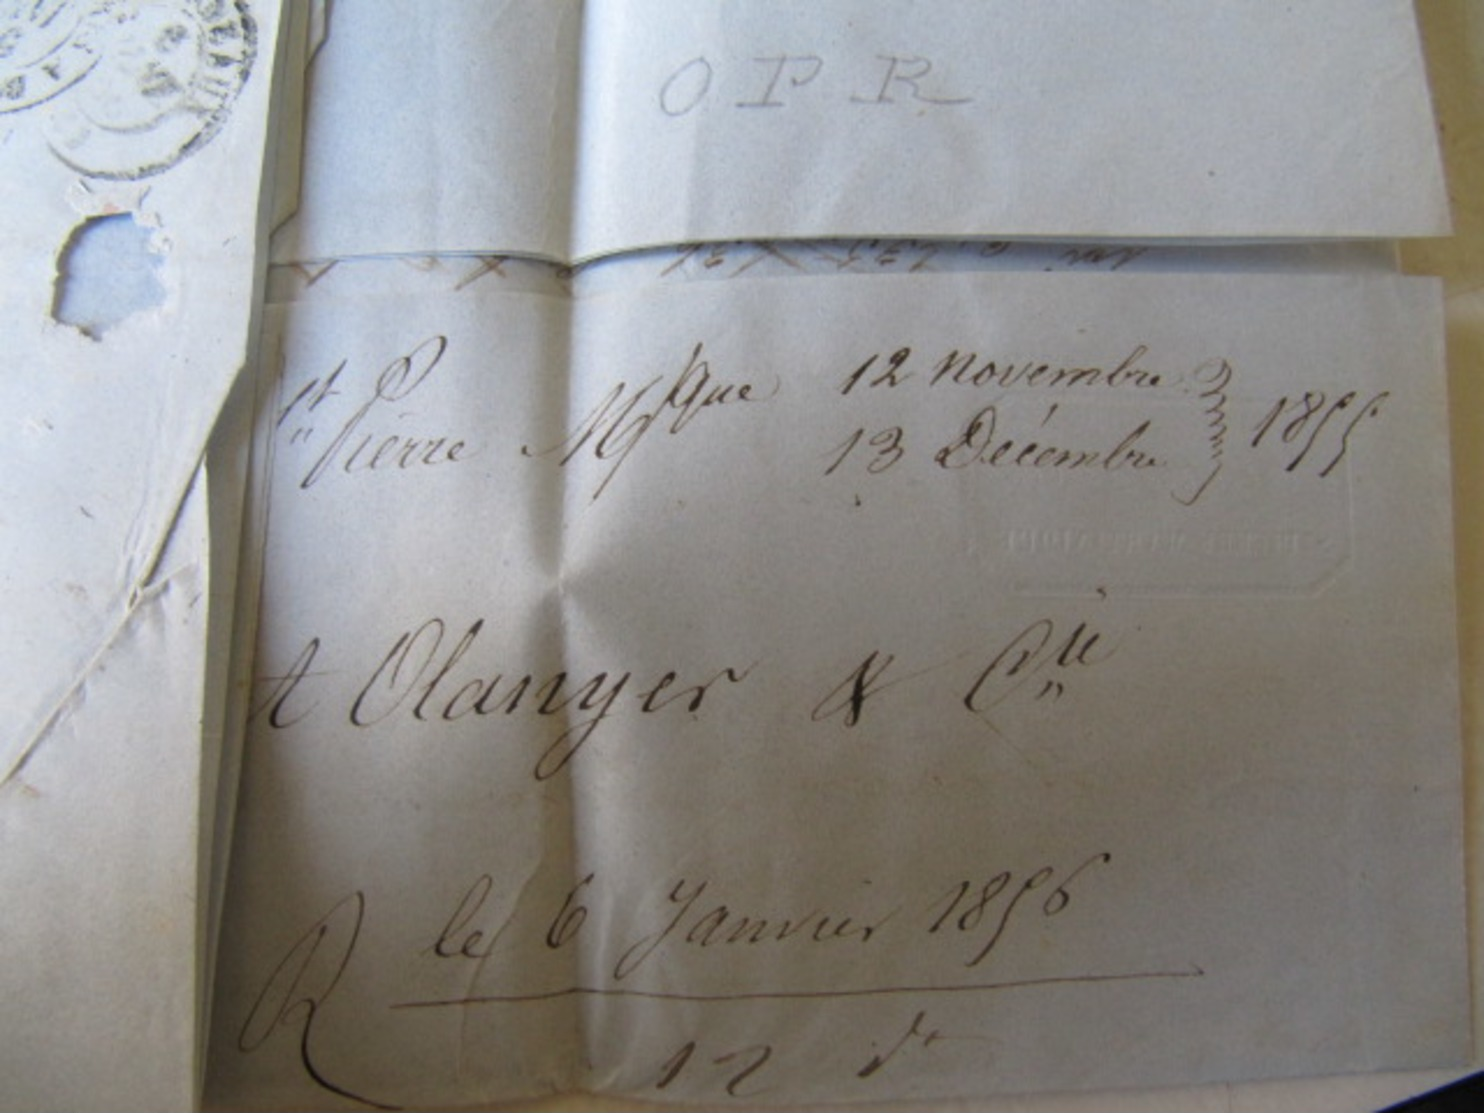 O P R
St Pierre Mque 12 Novembre
13 Décembre 1855
A Olanyer & Cie
R le 6 Janvier 1856
12 dt